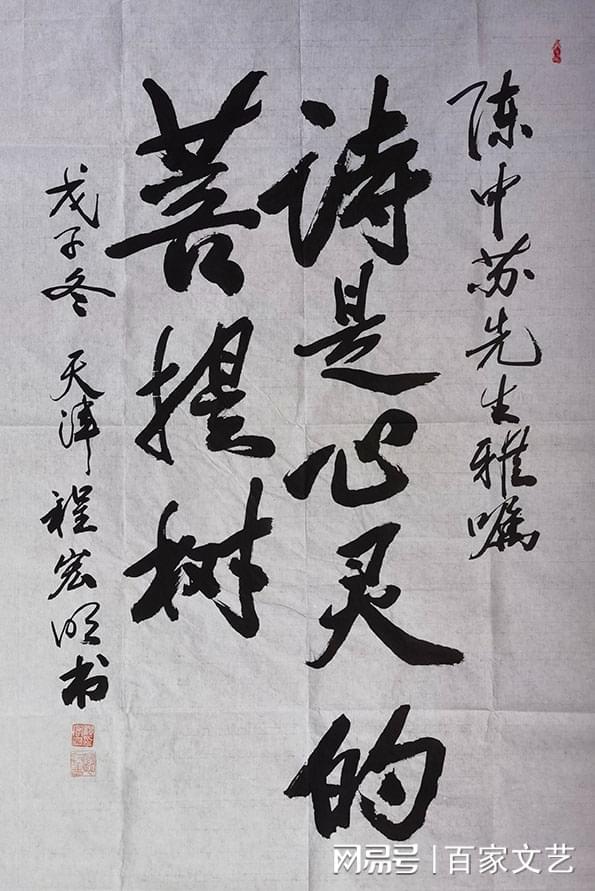 陈中苏先生雅嘱
诗是心灵的
菩提树
戊子冬 天津程宏明书
网易号 | 百家文艺